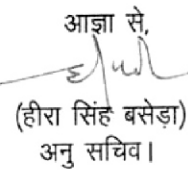 आज्ञा से,
(हीरा सिंह बसेड़ा)
अनु सचिव।